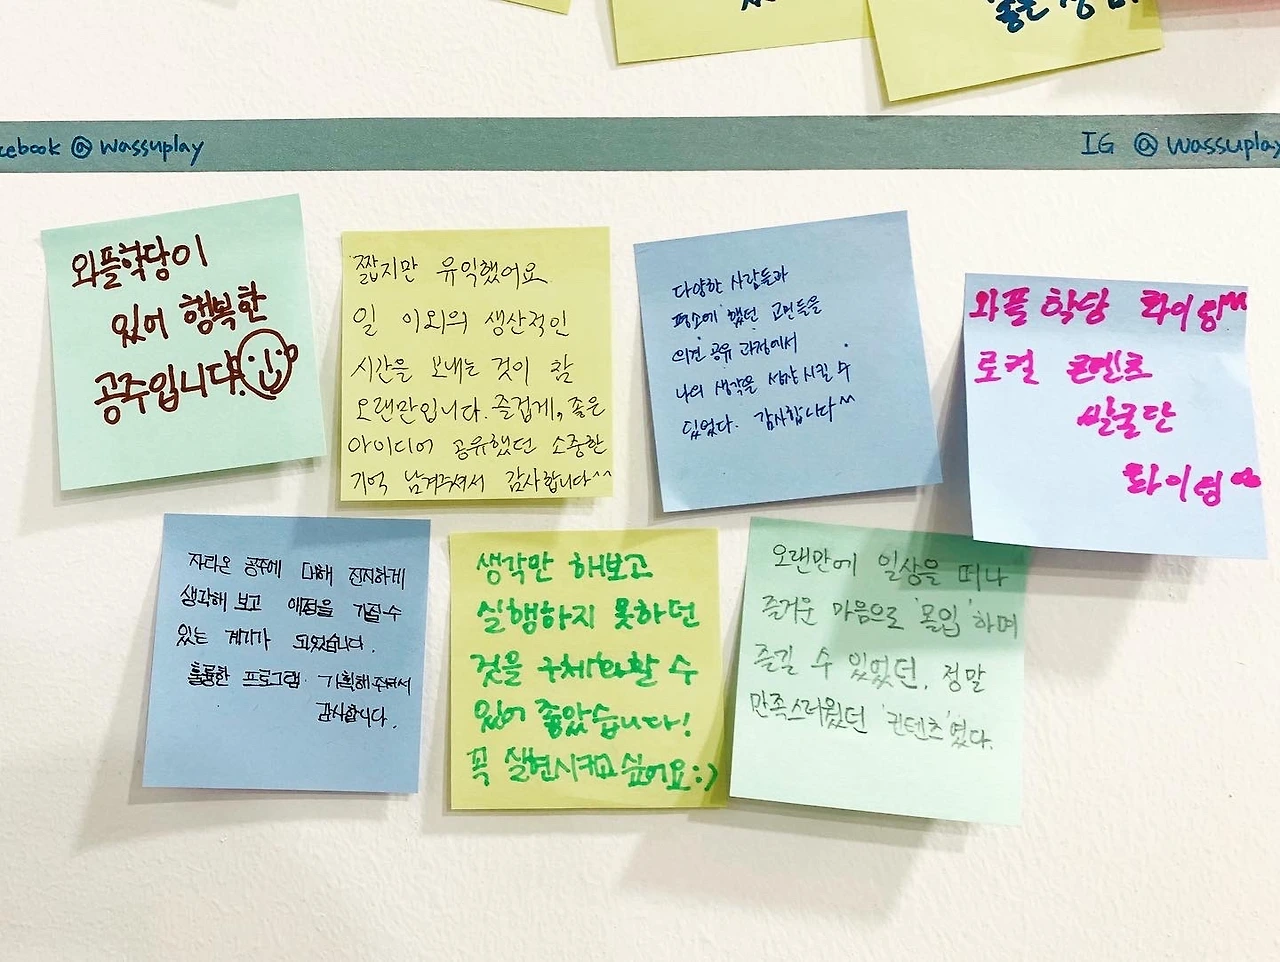 좋은
cebook @ wassuplay
IG @ wassuplay
와플학당이
있어 행복한
공주입니다!
짧지만 유익했어요
일 이외의 생산적인
시간을 보내는 것이 참
오랜만입니다. 즐겁게, 좋은
아이디어 공유했던 소중한
기억 남겨주셔서 감사합니다^^
다양한 사람들과
평소에 했던 고민들을
의견 공유 과정에서
나의 생각을 시킬 수
있었다. 감사합니다^^
와플 학당 화이팅^^
로컬 콘텐츠
발굴단
화이팅
자라온 공주에 대해 진지하게
생각해 보고 애정을 가질 수
있는 계기가 되었습니다.
훌륭한 프로그램 기획해주셔서
감사합니다.
생각만 해보고
실행하지 못하던
것을 구체화할 수
있어 좋았습니다!
꼭 실현시키고 싶어요:)
오랜만에 일상을 떠나
즐거운 마음으로 '몰입'하며
즐길 수 있었던, 정말
만족스러웠던 '컨텐츠'였다.